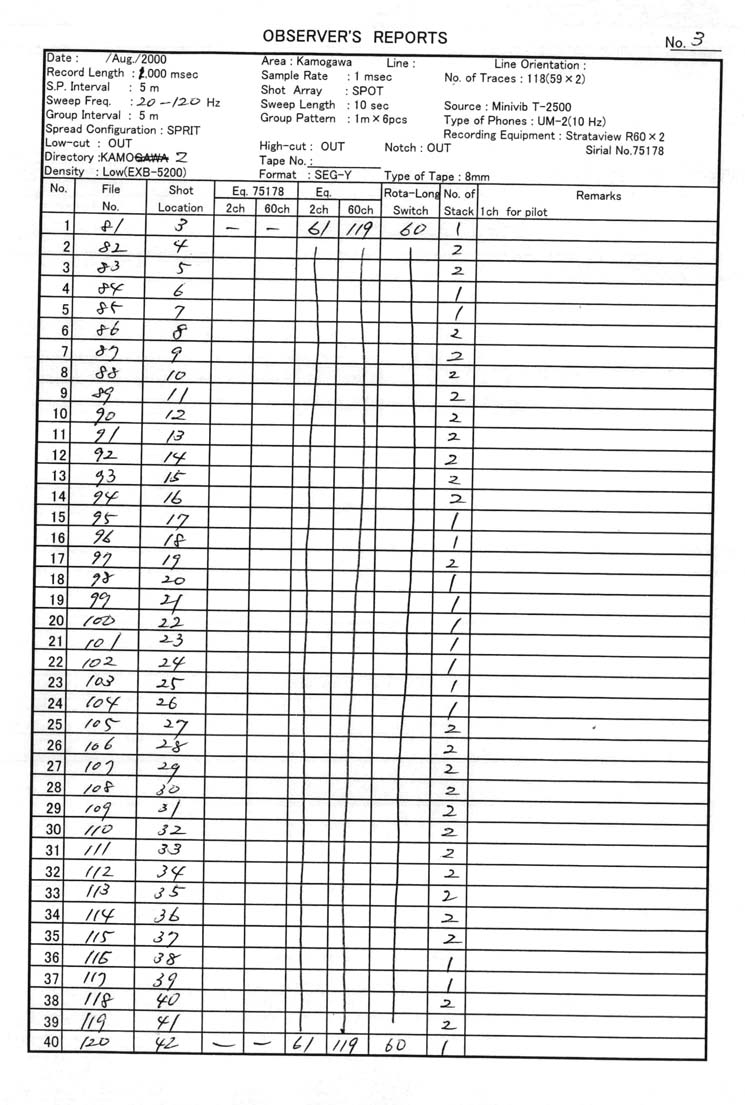 OBSERVER'S REPORTS
No. 3
Date : /Aug./2000 Area : Kamogawa Line : Line Orientation :
Record Length : 1,000 msec Sample Rate : 1 msec No. of Traces : 118(59×2)
S.P. Interval : 5 m Shot Array : SPOT
Sweep Freq. : 20-120 Hz Sweep Length : 10 sec Source : Minivib T-2500
Group Interval : 5 m Group Pattern : 1m×6pcs Type of Phones : UM-2(10 Hz)
Spread Configuration : SPRIT Recording Equipment : Strataview R60×2
Low-cut : OUT High-cut : OUT Notch : OUT Sirial No.75178
Directory :KAMOGAWA 2 Tape No. :
Density : Low(EXB-5200) Format : SEG-Y Type of Tape : 8mm
No. File Shot Eq. 75178 Eq. Rota-Long No. of Remarks
No. Location 2ch 60ch 2ch 60ch Switch Stack 1ch for pilot
1 81 3 — — 61 119 60 1
2 82 4 2
3 83 5 2
4 84 6 1
5 85 7 1
6 86 8 2
7 87 9 2
8 88 10 2
9 89 11 2
10 90 12 2
11 91 13 2
12 92 14 2
13 93 15 2
14 94 16 2
15 95 17 1
16 96 18 1
17 97 19 2
18 98 20 1
19 99 21 1
20 100 22 1
21 101 23 1
22 102 24 1
23 103 25 1
24 104 26 1
25 105 27 2
26 106 28 2
27 107 29 2
28 108 30 2
29 109 31 2
30 110 32 2
31 111 33 2
32 112 34 2
33 113 35 2
34 114 36 2
35 115 37 2
36 116 38 1
37 117 39 1
38 118 40 2
39 119 41 2
40 120 42 — — 61 119 60 1